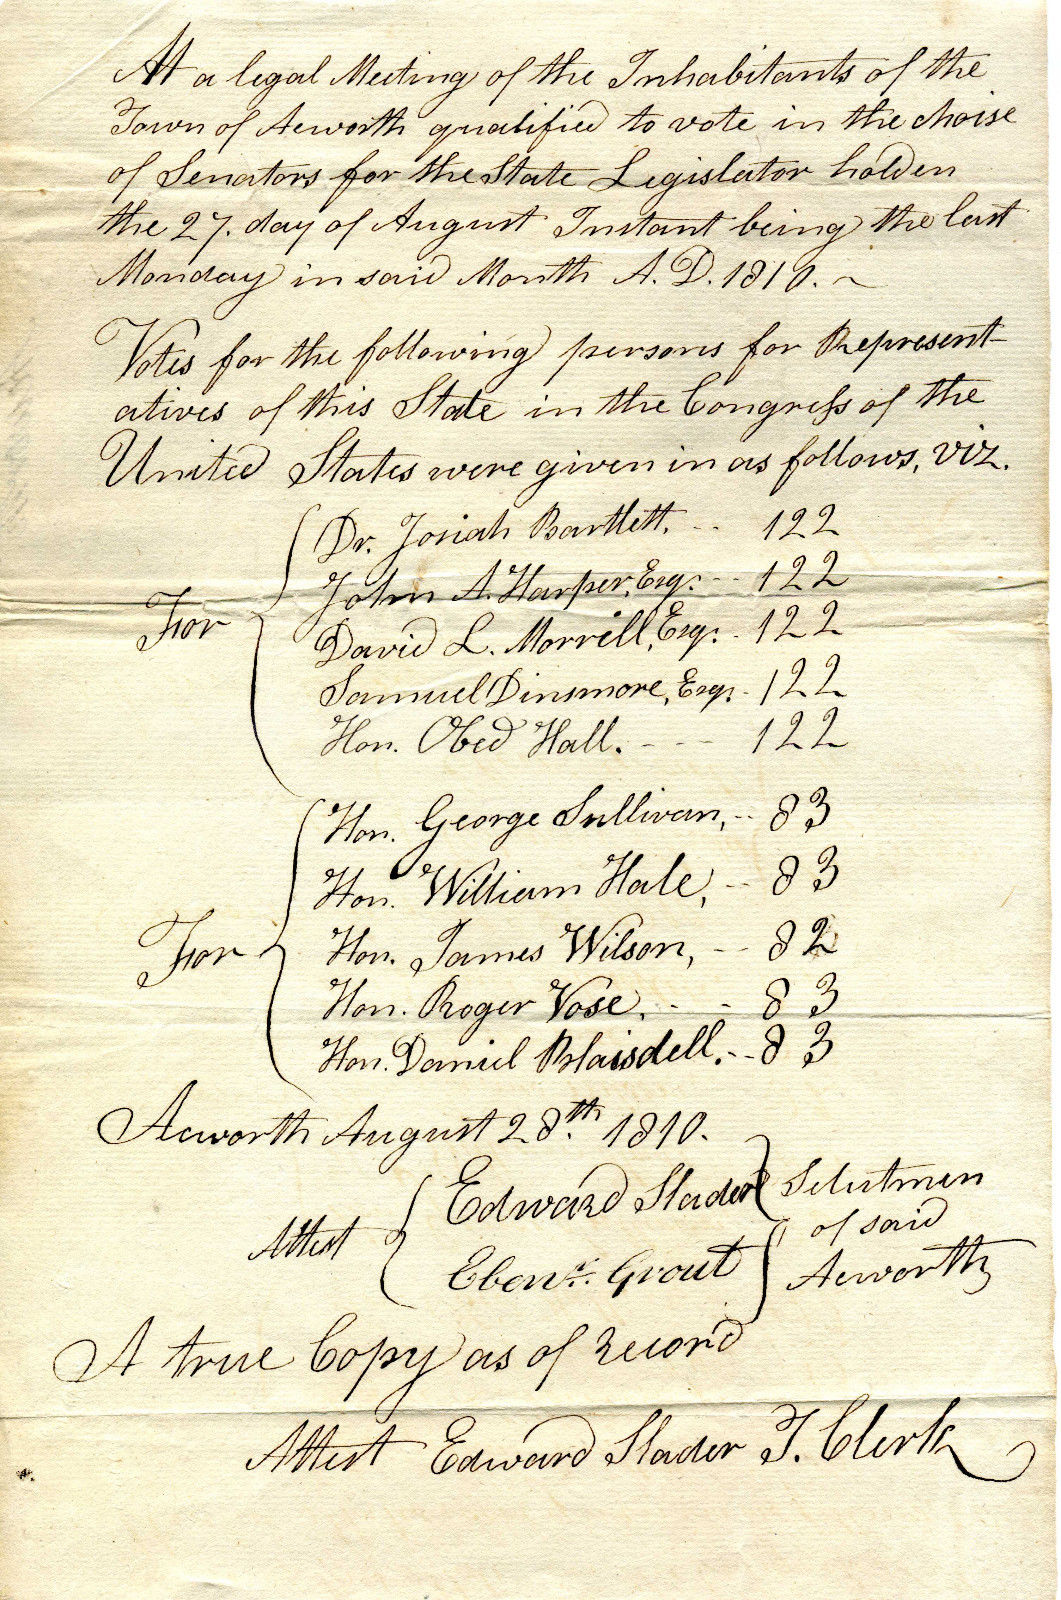 At a legal Meeting of the Inhabitants of the
Town of Acworth qualified to vote in the choise
of Senators for the State Legislator holden
the 27. day of August Instant being the last
Monday in said Month A.D. 1810. ~
Votes for the following persons for Represent-
atives of this State in the Congress of the
United States were given in as follows, viz.
Dr. Josiah Bartlett. -- 122
John A. Harper, Esqr. -- 122
For
David L. Morrill, Esqr. - 122
Samuel Dinsmore, Esqr. - 122
Hon. Obed Hall. - -- 122
Hon. George Sullivan, -- 83
Hon. William Hale, -- 83
For
Hon. James Wilson, -- 82
Hon. Roger Vose. - - 83
Hon. Daniel Blaisdell. -- 83
Acworth August 28.th 1810.
Attest
Edward Slader
Ebenr. Grout
Selectmen
of said
Acworth
A true Copy as of record
Attest Edward Slader T. Clerk